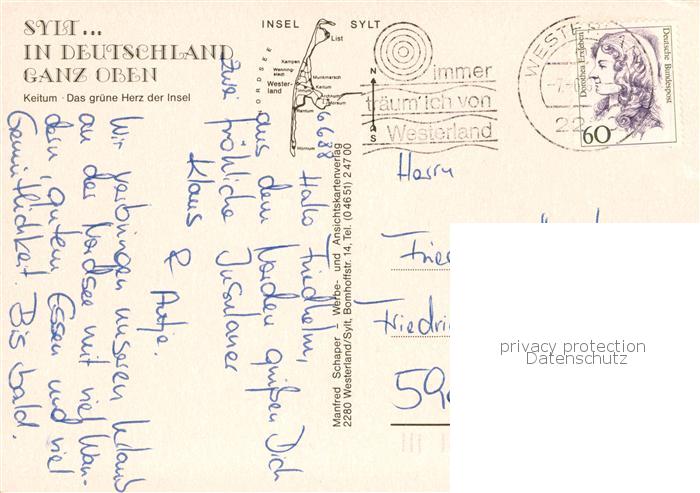 SYLT...
IN DEUTSCHLAND
GANZ OBEN
Keitum · Das grüne Herz der Insel
INSEL SYLT
NORDSEE
List
Kampen
Wenning-
stedt
Wester-
land
Munkmarsch
Keitum
Archsum
Morsum
Rantum
Hörnum
N
S
immer
träum' ich von
Westerland
WESTERLAND
-7.
22
Deutsche Bundespost
Dorothea Erxleben
60
6688
Hallo Friedhelm,
aus dem Norden grüßen Dich
zwei fröhliche Insulaner
Klaus & Antje.
Wir verbringen unseren Urlaub
an der Nordsee mit viel Wan-
dern, gutem Essen und viel
Gemütlichkeit. Bis bald.
Manfred Schaper - Werbe- und Ansichtskartenverlag
2280 Westerland/Sylt, Bomhoffstr. 14, Tel. (0 46 51) 2 47 00
Herrn
Frie
Friedri
59
privacy protection
Datenschutz